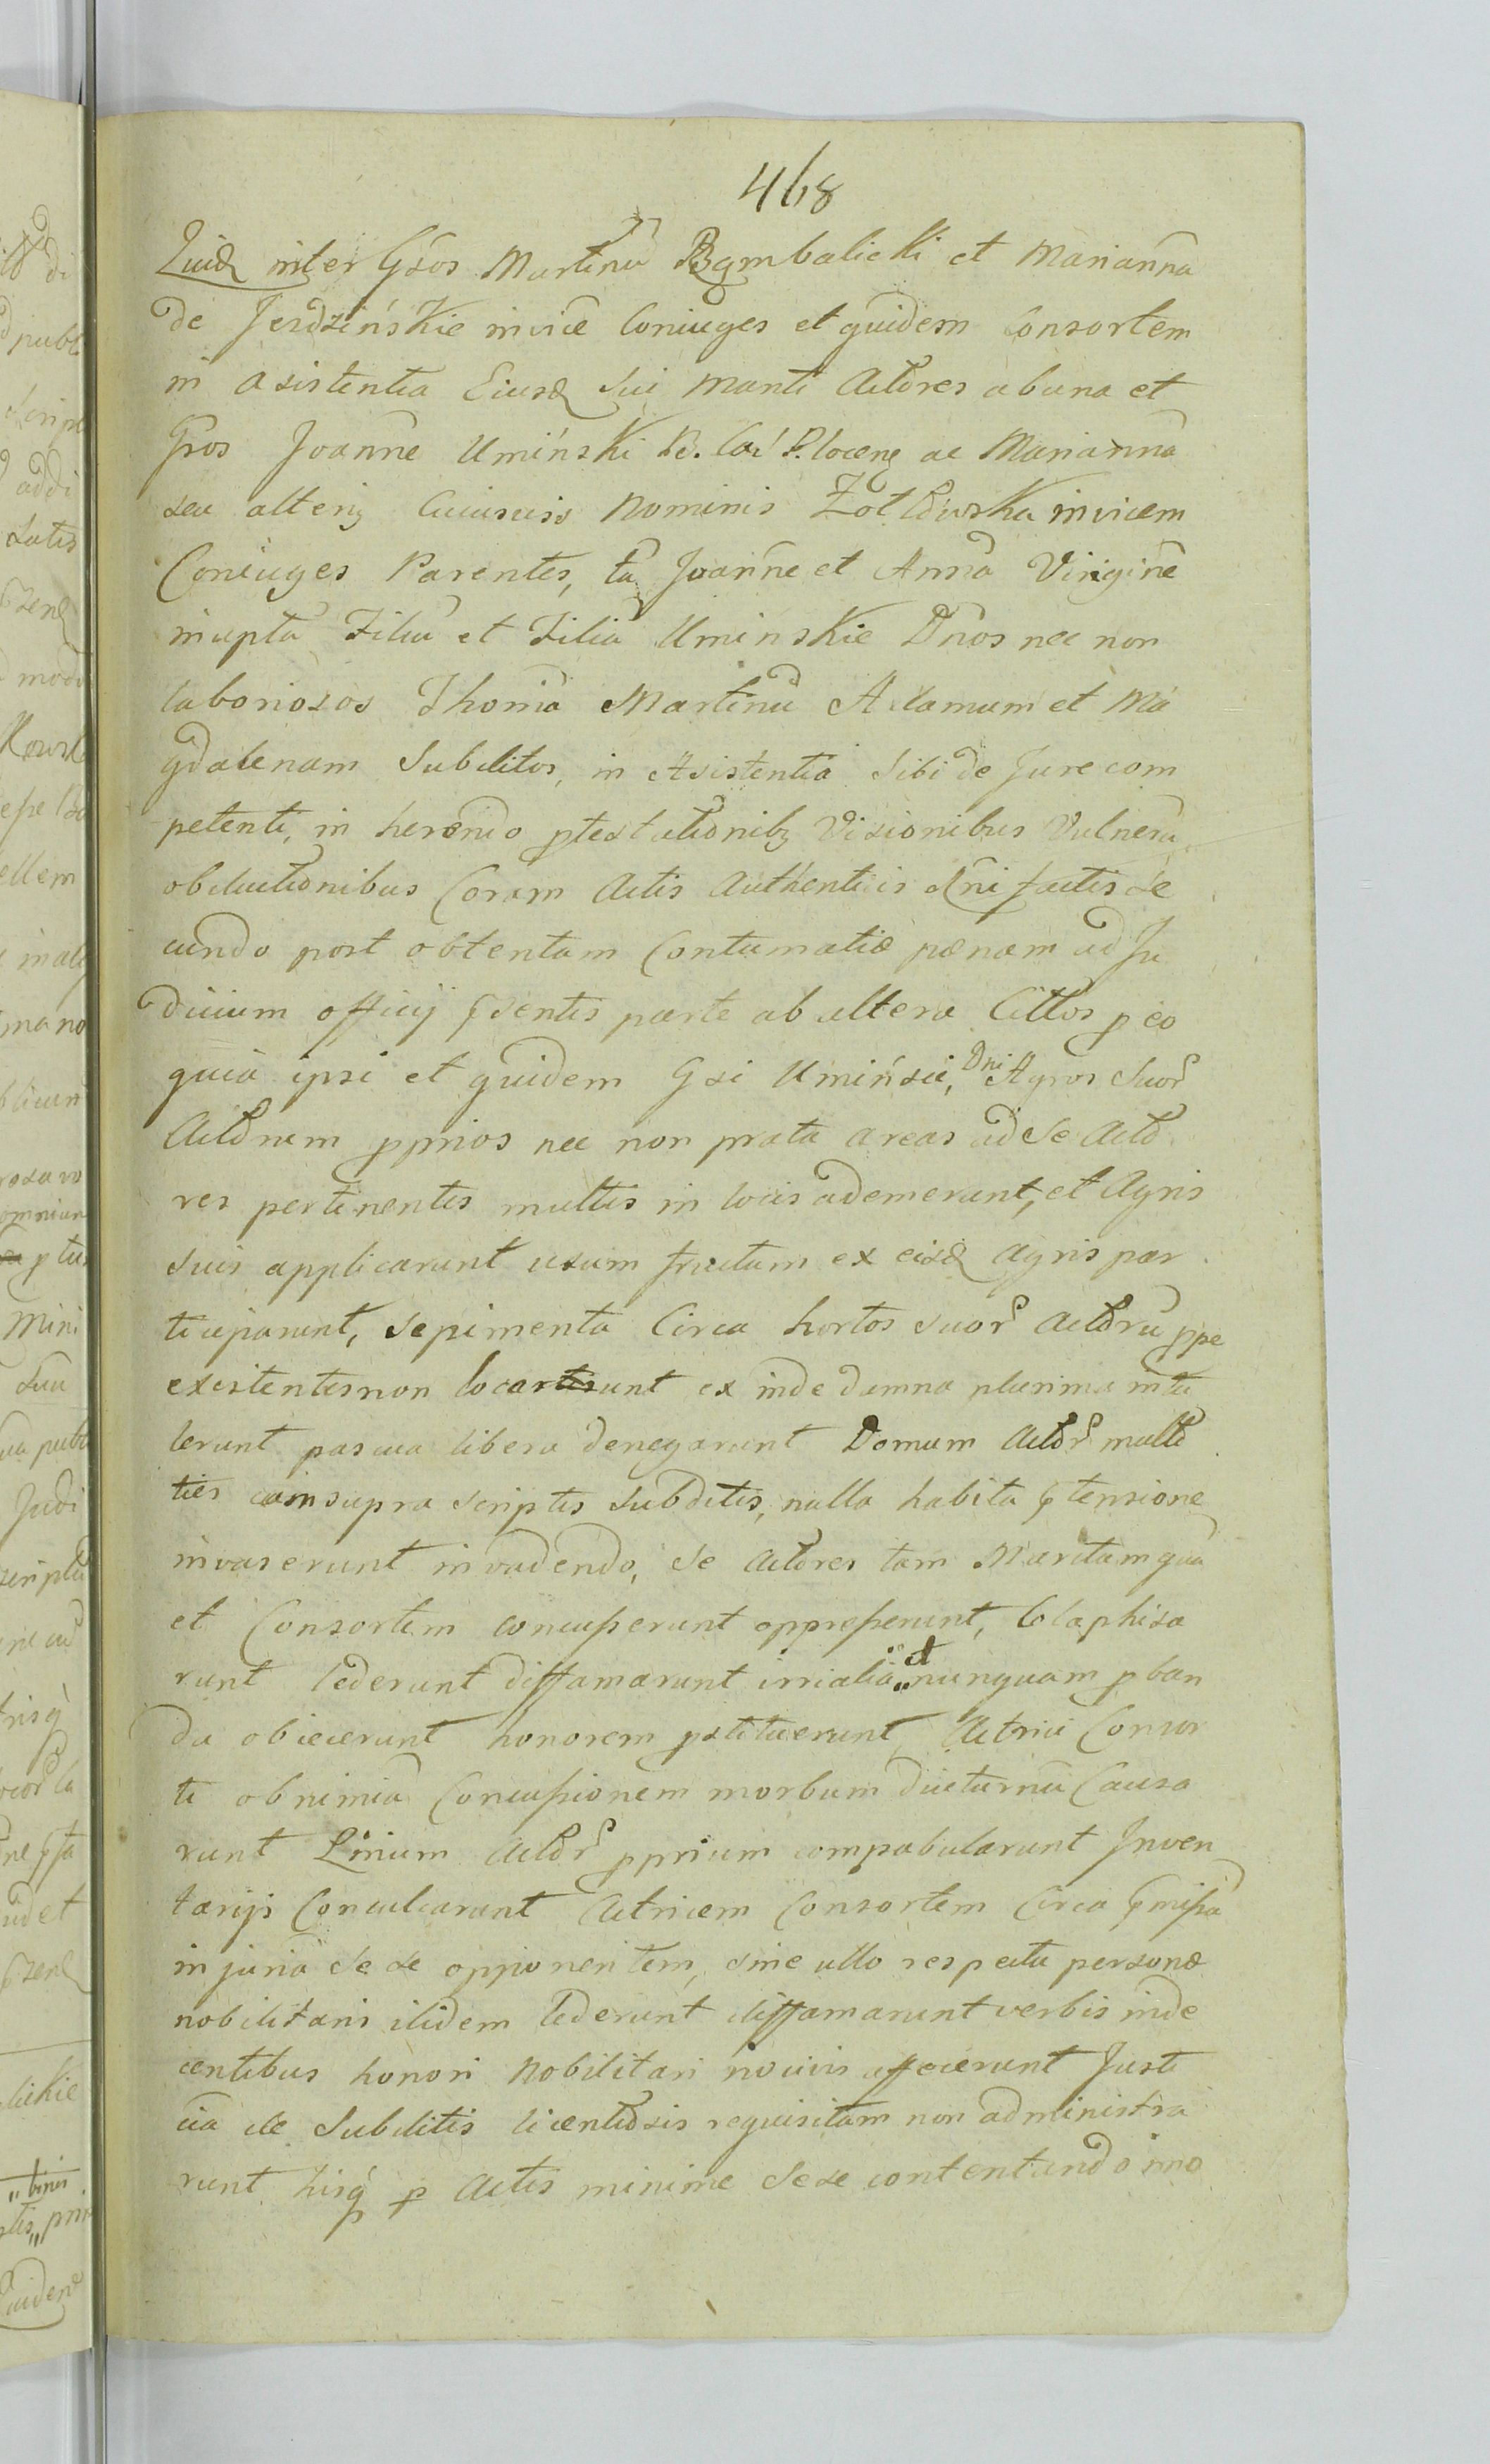 468
Quidē inter Gsōs Martinū Bąmbalicki et Mariannā
de Jerdzińskie invicē Coniuges et quidem Consortem
in asistentia Eiusd Sui mariti Actōres ab una et
Gsōs Joannē Umiński B. Cał P.locenẹ ac Mariannā
seu alteriq Cuiusvis Nominis Zołtōwska invicem
Coniuges Parentes, tā Joannē et Annā Virginē
inuptā Filiū et Filiā Uminskie Dnōs nec non
laboriosos Thomā Martinū Adamum et Ma
gdalenam Subditos, in Asistentia Sibi de Jure com
petenti, in herendo ptestationibq Visionibus Vulnerū
obductionibus Coram Actis Authenticis dni factis Se
cundo post obtentam Contumatiæ pænam ad Ju
dicium officij psentis parte ab altera Cittōs p eo
quia ipsi et quidem Gsi Umińscii, Dni Agros Suor
Actōrum pprios nec non prata areas ad Se Actō
res pertinentes multis in locis ademerunt, et Agris
Suis applicarunt usum fructum ex eisd agris par
ticiparunt, Sepimenta Circa hortos suor Actōrū ppe
existentes non locarunt ex inde damna plurima intu
lerunt pascua libera denegarunt Domum Actōr multo
ties cum supra scriptis Subditis, nulla habita ptensione
invaserunt invadendo, Se Actōres tam Maritam quā
et Consortem concusserunt oppresserunt, Colaphisa
runt lederunt diffamarunt irrialia et nunquam pban
da obiecerunt honorem pstituerunt Actrici Consor
ti ob nimiā Concussionem morbum diuturnū Causa
runt Linium Actōr pprium compabularunt Inven
tarijs Conculcarunt Actricem Consortem Circa pmissā
injuriā Sese opponentem, sine ullo respectu personæ
nobilitaris itidem lederunt diffamarunt verbis inde
centibus honori Nobilitari nocivis affecerunt Justi
cia de Subditis licentiōsis requisitam non administra
runt hisq̄ p Actis minime Sese contentando imo